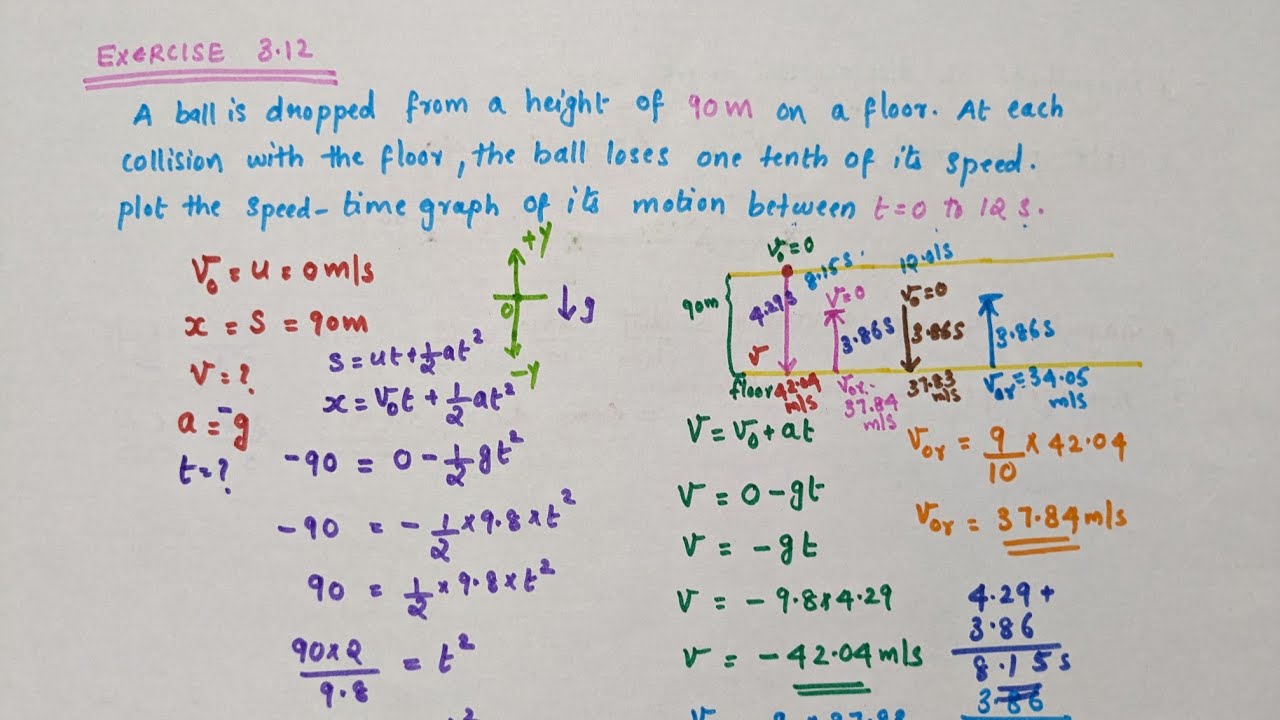 EXERCISE 3.12
A ball is dropped from a height of 90m on a floor. At each
collision with the floor, the ball loses one tenth of its speed.
plot the speed-time graph of its motion between t=0 to 12 s.
V₀ = u = 0 m/s
x = s = 90m
v = ?
a = -g
t = ?
+y
0
↓g
-y
s = ut + 1/2 at²
x = V₀t + 1/2 at²
-90 = 0 - 1/2 gt²
-90 = - 1/2 × 9.8 × t²
90 = 1/2 × 9.8 × t²
90×2/9.8 = t²
V₀=0
8.15s
12.01s
90m
4.29s
v
v=0
3.86s
V₀=0
3.86s
3.86s
floor
42.04 m/s
V₀r = 37.84 m/s
37.83 m/s
V₀r = 34.05 m/s
V = V₀ + at
V = 0 - gt
V = -gt
V = -9.8×4.29
V = -42.04 m/s
V₀r = 9/10 × 42.04
V₀r = 37.84 m/s
4.29 +
3.86
8.15 s
3.86